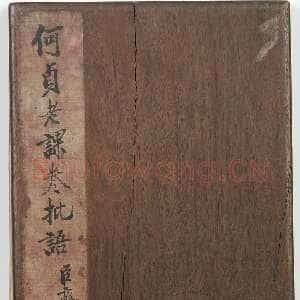 何貞老課卷批語
Shufawang.CN